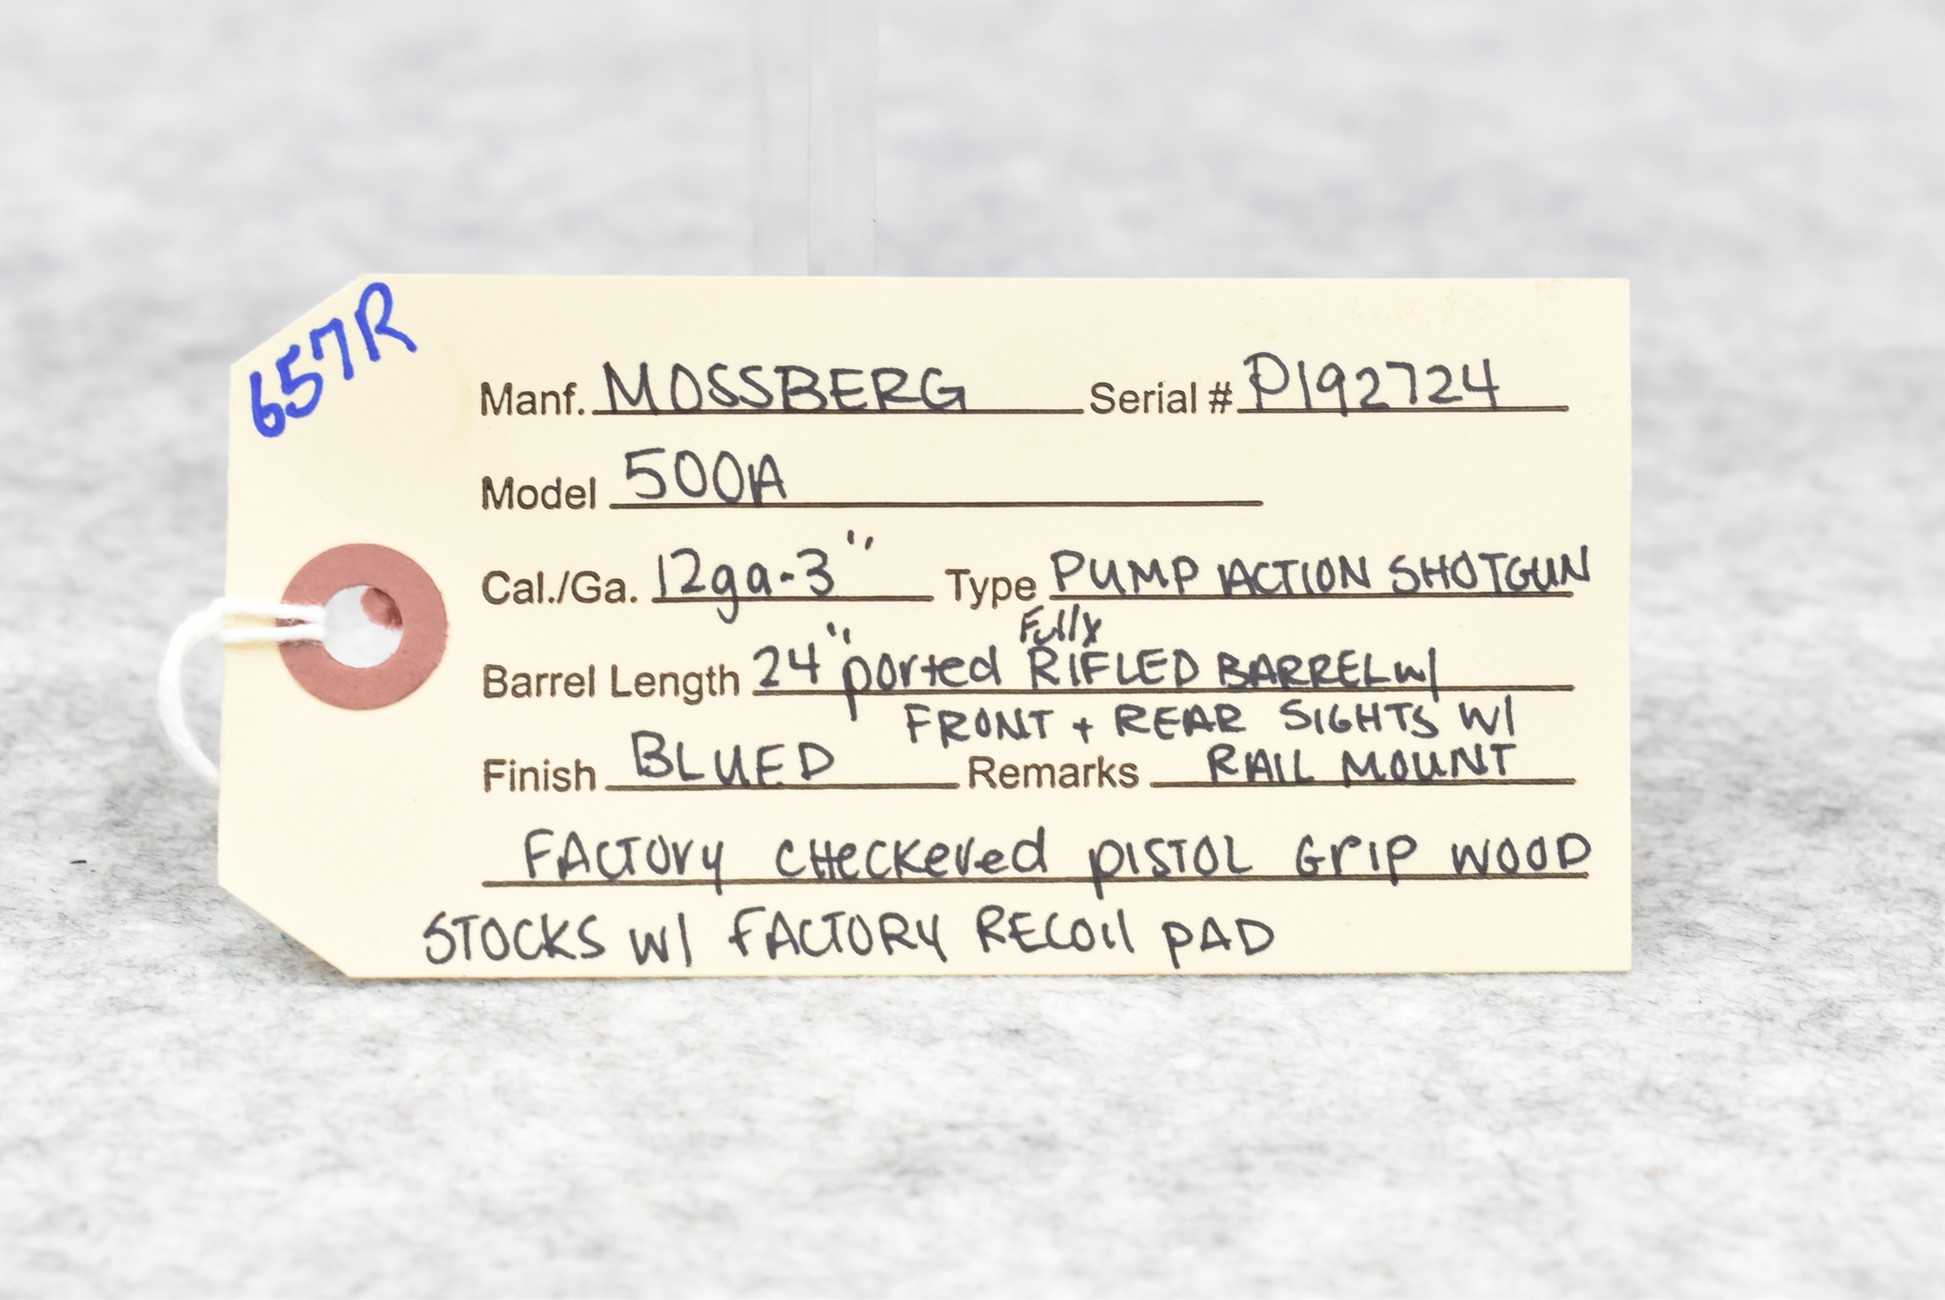 657R
Manf. MOSSBERG Serial # P192724
Model 500A
Cal./Ga. 12ga-3" Type PUMP ACTION SHOTGUN
Fully
Barrel Length 24" ported RIFLED BARREL w/
FRONT + REAR SIGHTS W/
Finish BLUED Remarks RAIL MOUNT
FACTORY CHECKERED PISTOL GRIP WOOD
STOCKS W/ FACTORY RECOIL PAD